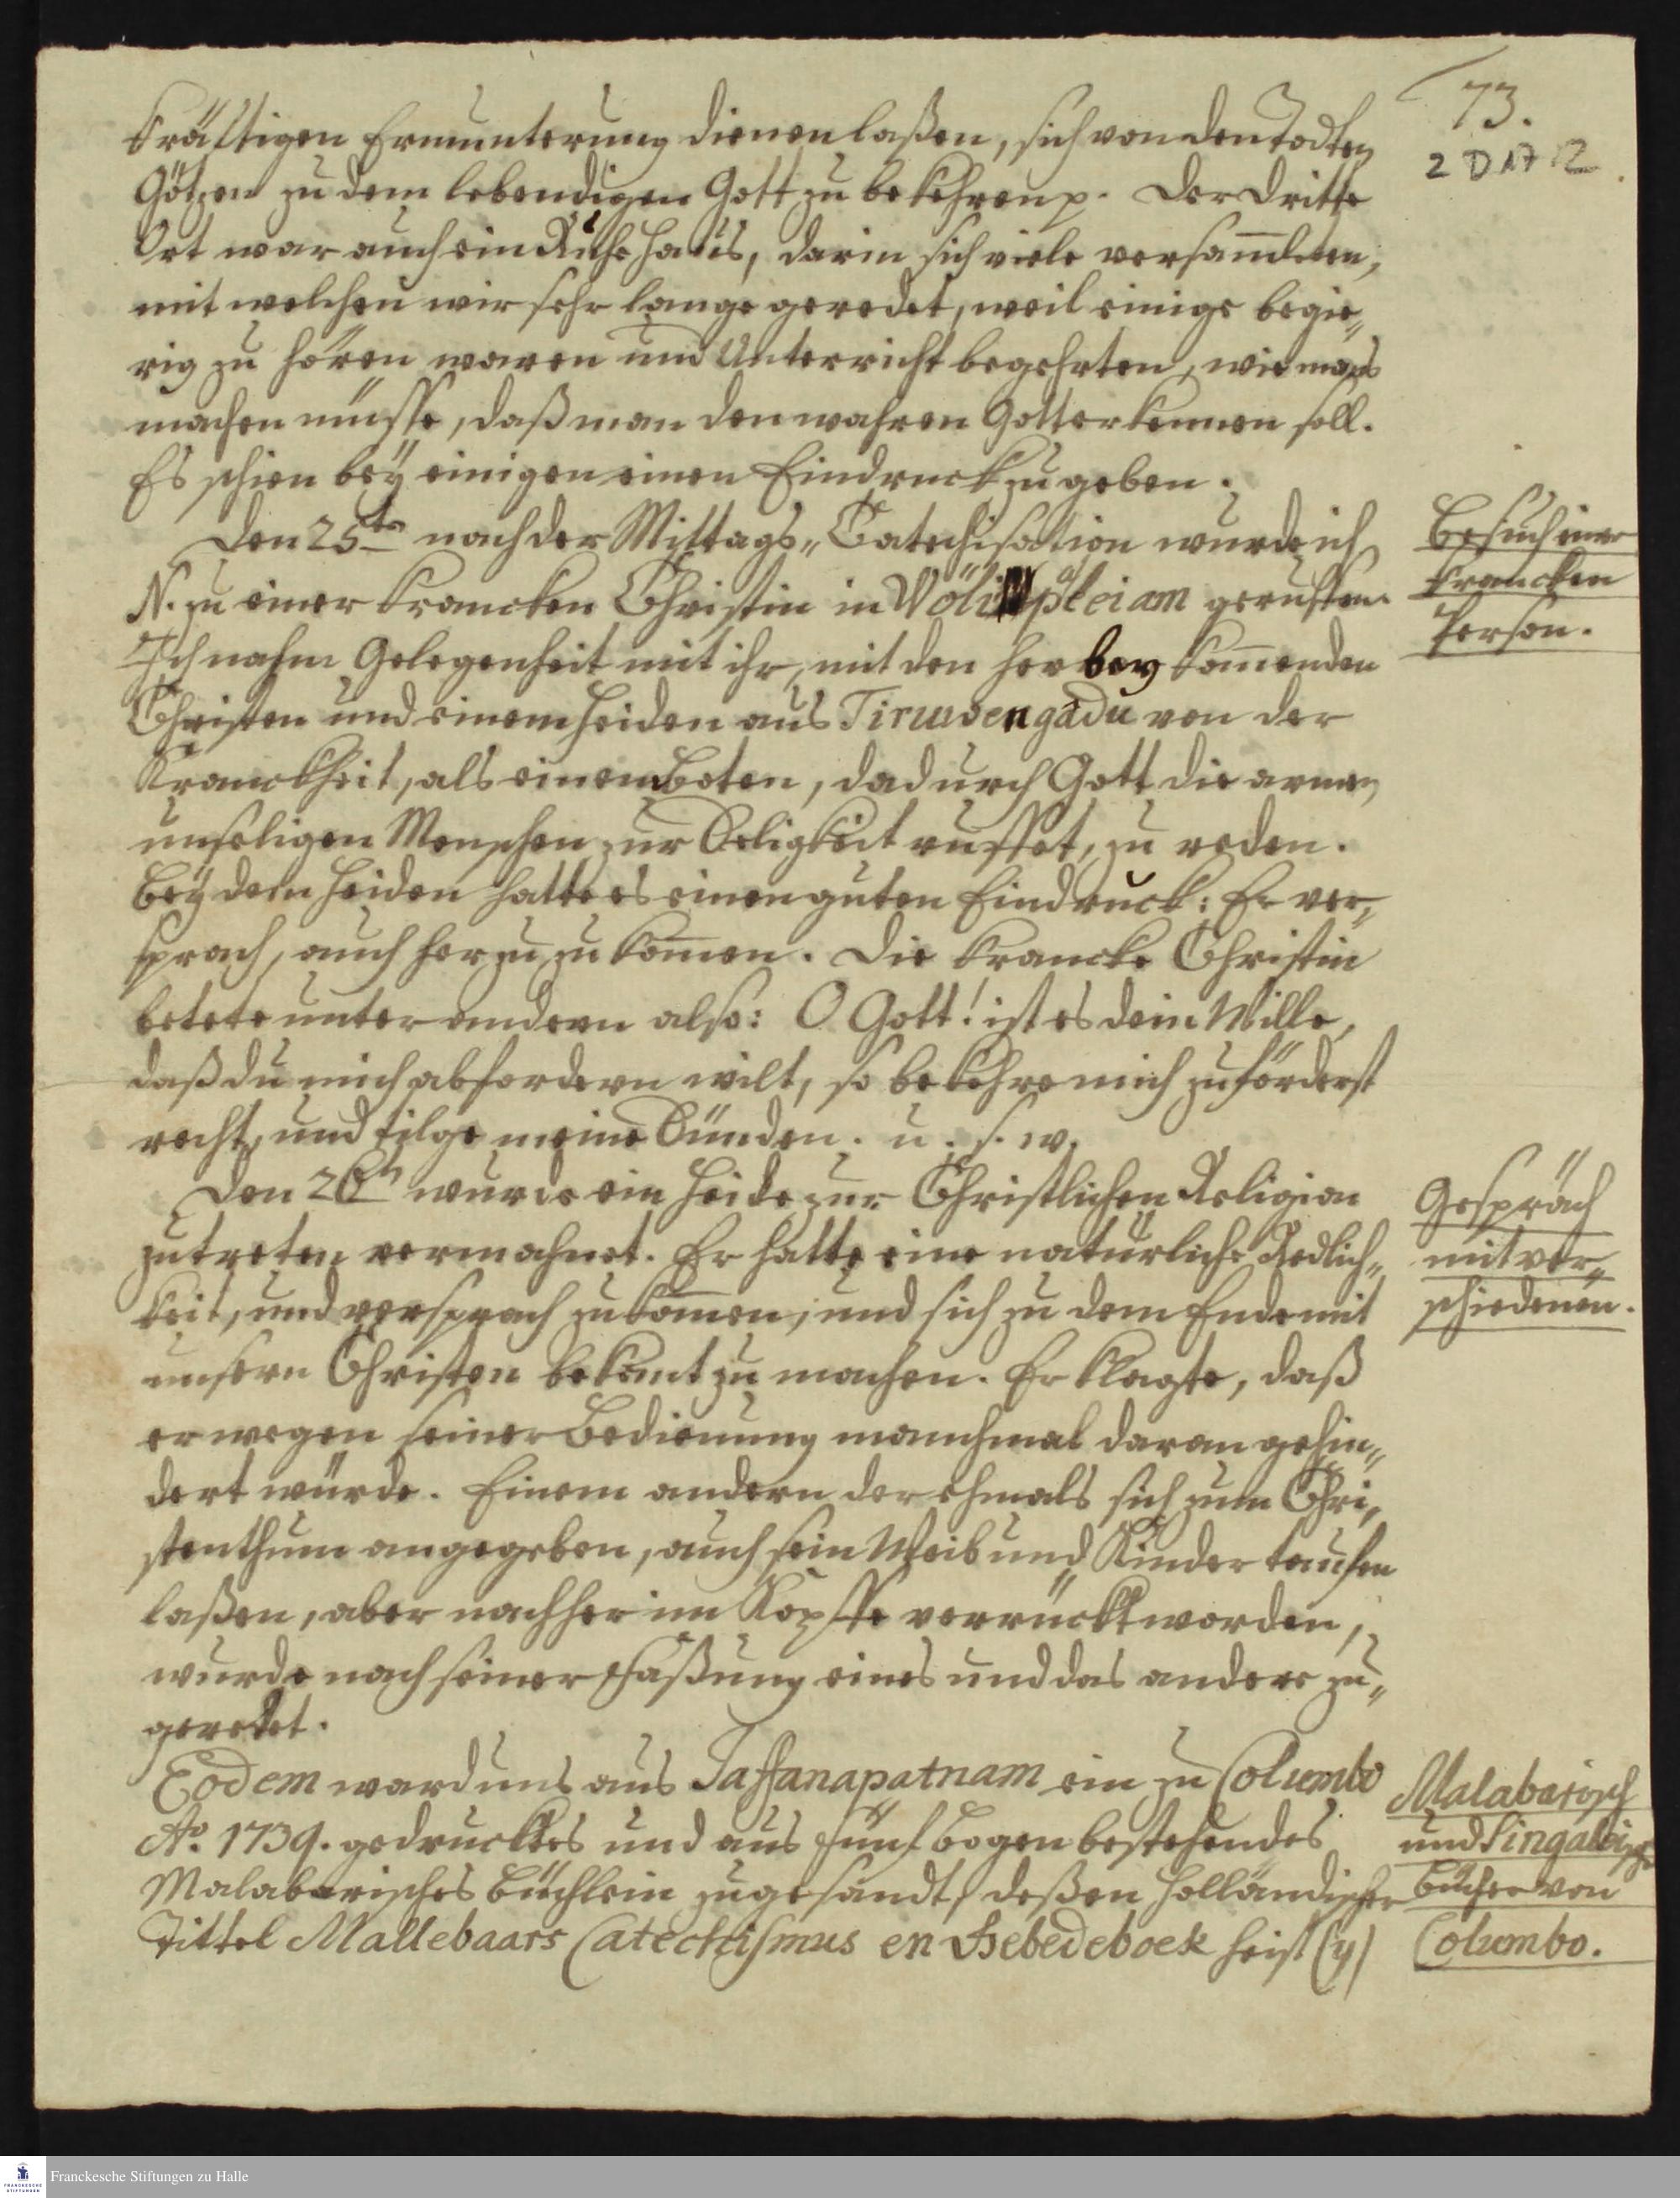 73.
2 D 17 12
kräftigen Ermunterung dienen laßen, sich von den todten
Götzen zu dem lebendigen Gott zu bekehren p. Der dritte
Ort war auch ein Ruhe Haus, darin sich viele versam̄leten,
mit welchen wir sehr lange geredet, weil einige begie„
rig zu hören waren und Unterricht begehrten, wie mans
machen müsse, daß man den wahren Gott erkennen soll.
Es schien bey einigen einen Eindruck zu geben.
Den 25ten nach der Mittags„ Catechisation wurde ich
N. zu einer krancken Christin in gerufften.
Ich nahm Gelegenheit mit ihr, mit den herbey kom̄enden
Christen und einem Heiden aus Tiruwengādu von der
Kranckheit, als einem Boten, dadurch Gott die armen
unseligen Menschen zur Seligkeit ruffet, zu reden.
Bey dem Heiden hatte es einen guten Eindruck: Er ver„
sprach, auch herzu zu kom̄en. Die krancke Christin
betete unter andern also: O Gott! ist es dein Wille,
daß du mich abfordern wilt, so bekehre mich zuförderst
recht, und tilge meine Sünden. u. s. w.
Den 26n wurde ein Heide zur Christlichen Religion
zutreten vermahnet. Er hatte eine natürliche Redlich„
keit, und versprach zu kom̄en, und sich zu dem Ende mit
unsern Christen bekant zu machen. Er klagte, daß
er wegen seiner Bedienung manchmal daran gehin„
dert würde. Einem andern der ehmals sich zum Chri„
stenthum angegeben, auch sein Weib und Kinder taufen
laßen, aber nachher im Kopffe verrückt worden,
wurde nach seiner Faßung eines und das andere zu„
geredet.
Eodem ward uns aus Jaffanapatnam ein zu Columbo
Ao. 1739. gedrucktes und aus fünf Bogen bestehendes
Malabarisches Büchlein zugesandt, deßen Holländischer
Tittel Mallebaars Catechismus en Gebedeboek heist (y)
Besuch einer
krancken
Person.
Gespräch
mit ver„
schiedenen.
Malabarisch
und Singaleische
Bücher von
Columbo.
Franckesche Stiftungen zu Halle
FRANCKESCHE
STIFTUNGEN